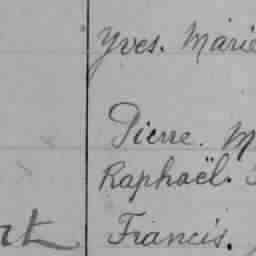 Yves. Marie
Pierre. M
Raphaël.
rt Francis.